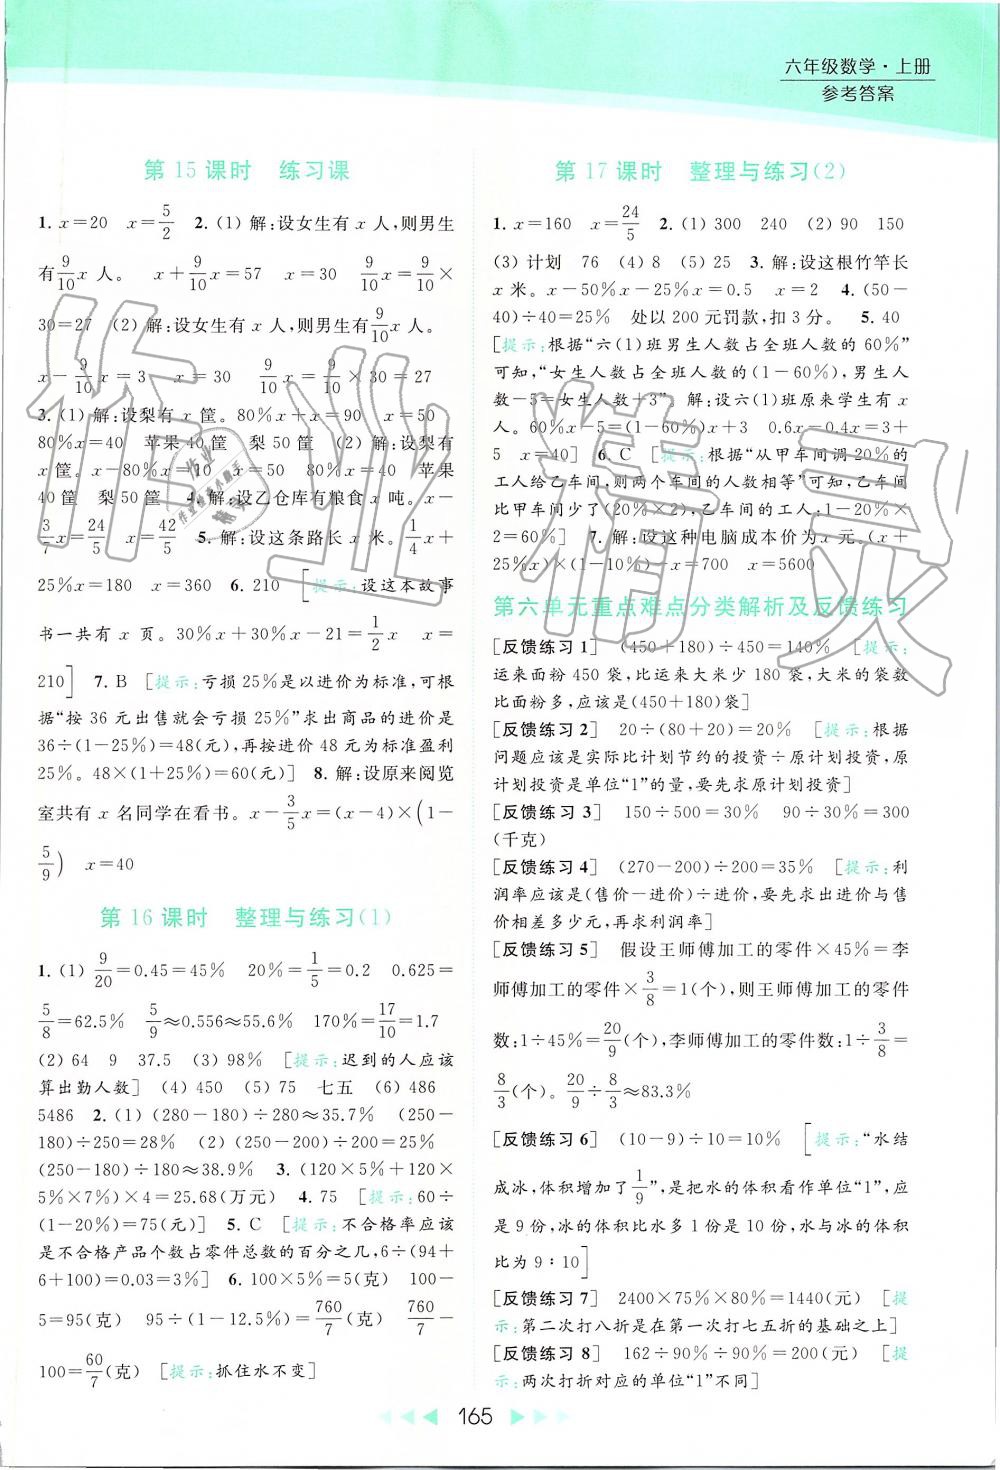 六年级数学·上册
参考答案
第 15 课时　练习课
1. x=20　x=5/2　2. (1) 解:设女生有 x 人,则男生
有9/10x 人。　x+9/10x=57　x=30　9/10×
30=27　(2) 解:设女生有 x 人,则男生有9/10x 人。
x-9/10x=3　x=30　9/10×30=27
3. (1) 解:设梨有 x 筐。80%x+x=90　x=50
80%x=40　苹果 40 筐　梨 50 筐　(2) 解:设梨有
x 筐。x-80%x=10　x=50　80%x=40　苹果
40 筐　梨 50 筐　4. 解:设乙仓库有粮食 x 吨。x-
3/7x=24/5　x=42/5　5. 解:设这条路长 x 米。1/4x+
25%x=180　x=360　6. 210　[提示:设这本故事
书一共有 x 页。30%x+30%x+21=1/2x　x=
210]　7. B　[提示:亏损 25%是以进价为标准,可根
据“按 36 元出售就会亏损 25%”求出商品的进价是
36÷(1-25%)=48(元),再按进价 48 元为标准盈利
25%。48×(1+25%)=60(元)]　8. 解:设原来阅览
室共有 x 名同学在看书。x-3/5x=(x-4)×(1-
5/9)　x=40
第 16 课时　整理与练习(1)
1. (1) 9/20=0.45=45%　20%=1/5=0.2　0.625=
5/8=62.5%　5/9≈0.556≈55.6%　170%=17/10=1.7
(2) 64　9　37.5　(3) 98%　[提示:迟到的人应该
算出勤人数]　(4) 450　(5) 75　七五　(6) 486
5486　2. (1) (280-180)÷280≈35.7%　(250-
180)÷250=28%　(2) (250-200)÷200=25%
(250-180)÷180≈38.9%　3. (120×5%+120×
5%×7%)×4=25.68(万元)　4. 75　[提示:60÷
(1-20%)=75(元)]　5. C　[提示:不合格率应该
是不合格产品个数占零件总数的百分之几,6÷(94+
6+100)=0.03=3%]　6. 100×5%=5(克)　100-
5=95(克)　95÷(1-12.5%)=760/7(克)　760/7-
100=60/7(克)　[提示:抓住水不变]
第 17 课时　整理与练习(2)
1. x=160　x=24/5　2. (1) 300　240　(2) 90　150
(3) 计划　76　(4) 8　(5) 25　3. 解:设这根竹竿长
x 米。x-50%x-25%x=0.5　x=2　4. (50-
40)÷40=25%　处以 200 元罚款,扣 3 分。　5. 40
[提示:根据“六(1)班男生人数占全班人数的 60%”
可知,“女生人数占全班人数的(1-60%),男生人
数-5=女生人数+3”。解:设六(1)班原来学生有 x
人。60%x-5=(1-60%)x+3　0.6x-0.4x=3+
5　x=40]　6. C　[提示:根据“从甲车间调 20%的
工人给乙车间,则两个车间的人数相等”可知,乙车间
比甲车间少了(20%×2),乙车间的工人:1-20%×
2=60%]　7. 解:设这种电脑成本价为 x 元。(x+
25%x)×(1-10%)-x=700　x=5600
第六单元重点难点分类解析及反馈练习
[反馈练习 1]　(450+180)÷450=140%　[提示:
运来面粉 450 袋,比运来大米少 180 袋,大米的袋数
比面粉多,应该是(450+180)袋]
[反馈练习 2]　20÷(80+20)=20%　[提示:根据
问题应该是实际比计划节约的投资÷原计划投资,原
计划投资是单位“1”的量,要先求原计划投资]
[反馈练习 3]　150÷500=30%　90÷30%=300
(千克)
[反馈练习 4]　(270-200)÷200=35%　[提示:利
润率应该是(售价-进价)÷进价,要先求出进价与售
价相差多少元,再求利润率]
[反馈练习 5]　假设王师傅加工的零件×45%=李
师傅加工的零件×3/8=1(个),则王师傅加工的零件
数:1÷45%=20/9(个),李师傅加工的零件数:1÷3/8=
8/3(个)。20/9÷8/3≈83.3%
[反馈练习 6]　(10-9)÷10=10%　[提示:“水结
成冰,体积增加了1/9”,是把水的体积看作单位“1”,应
是 9 份,冰的体积比水多 1 份是 10 份,水与冰的体积
比为 9∶10]
[反馈练习 7]　2400×75%×80%=1440(元)　[提
示:第二次打八折是在第一次打七五折的基础之上]
[反馈练习 8]　162÷90%÷90%=200(元)　[提
示:两次打折对应的单位“1”不同]
165
作业精灵